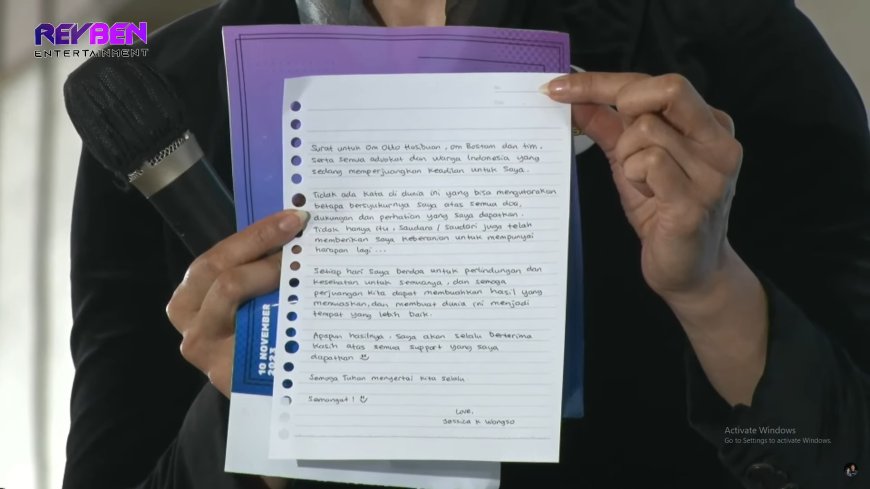 REYBEN
ENTERTAINMENT
Surat untuk Om Otto Hasibuan, Om Bostam dan tim,
serta semua advokat dan warga Indonesia yang
sedang memperjuangkan keadilan untuk saya.
Tidak ada kata di dunia ini yang bisa mengutarakan
betapa bersyukurnya saya atas semua doa,
dukungan dan perhatian yang saya dapatkan.
Tidak hanya itu, saudara / saudari juga telah
memberikan saya keberanian untuk mempunyai
harapan lagi ...
Setiap hari saya berdoa untuk perlindungan dan
kesehatan untuk semuanya, dan semoga
perjuangan kita dapat membuahkan hasil yang
memuaskan, dan membuat dunia ini menjadi
tempat yang lebih baik.
Apapun hasilnya, saya akan selalu berterima
kasih atas semua support yang saya
dapatkan
Semoga Tuhan menyertai kita selalu
Semangat !
Love,
Jessica K Wongso
10 NOVEMBER
2023
Activate Windows
Go to Settings to activate Windows.